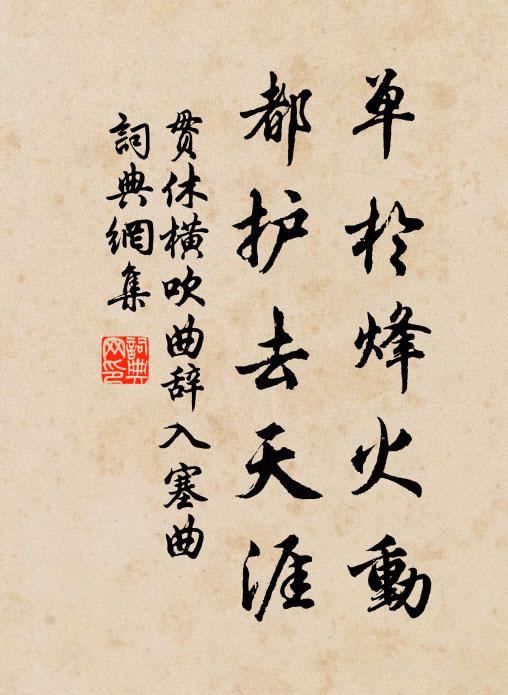 单於烽火動
都护去天涯
贯休横吹曲辞入塞曲
詞典網集
詞典网印